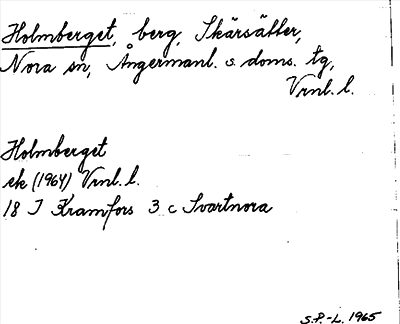 Holmberget, berg, Skärsätter,
Nora sn, Ångermanl. s. doms. tg,
Vrnl. l.
Holmberget
ek (1964) Vrnl. l.
18 I Kramfors 3 c Svartnora
S.P.-L. 1965